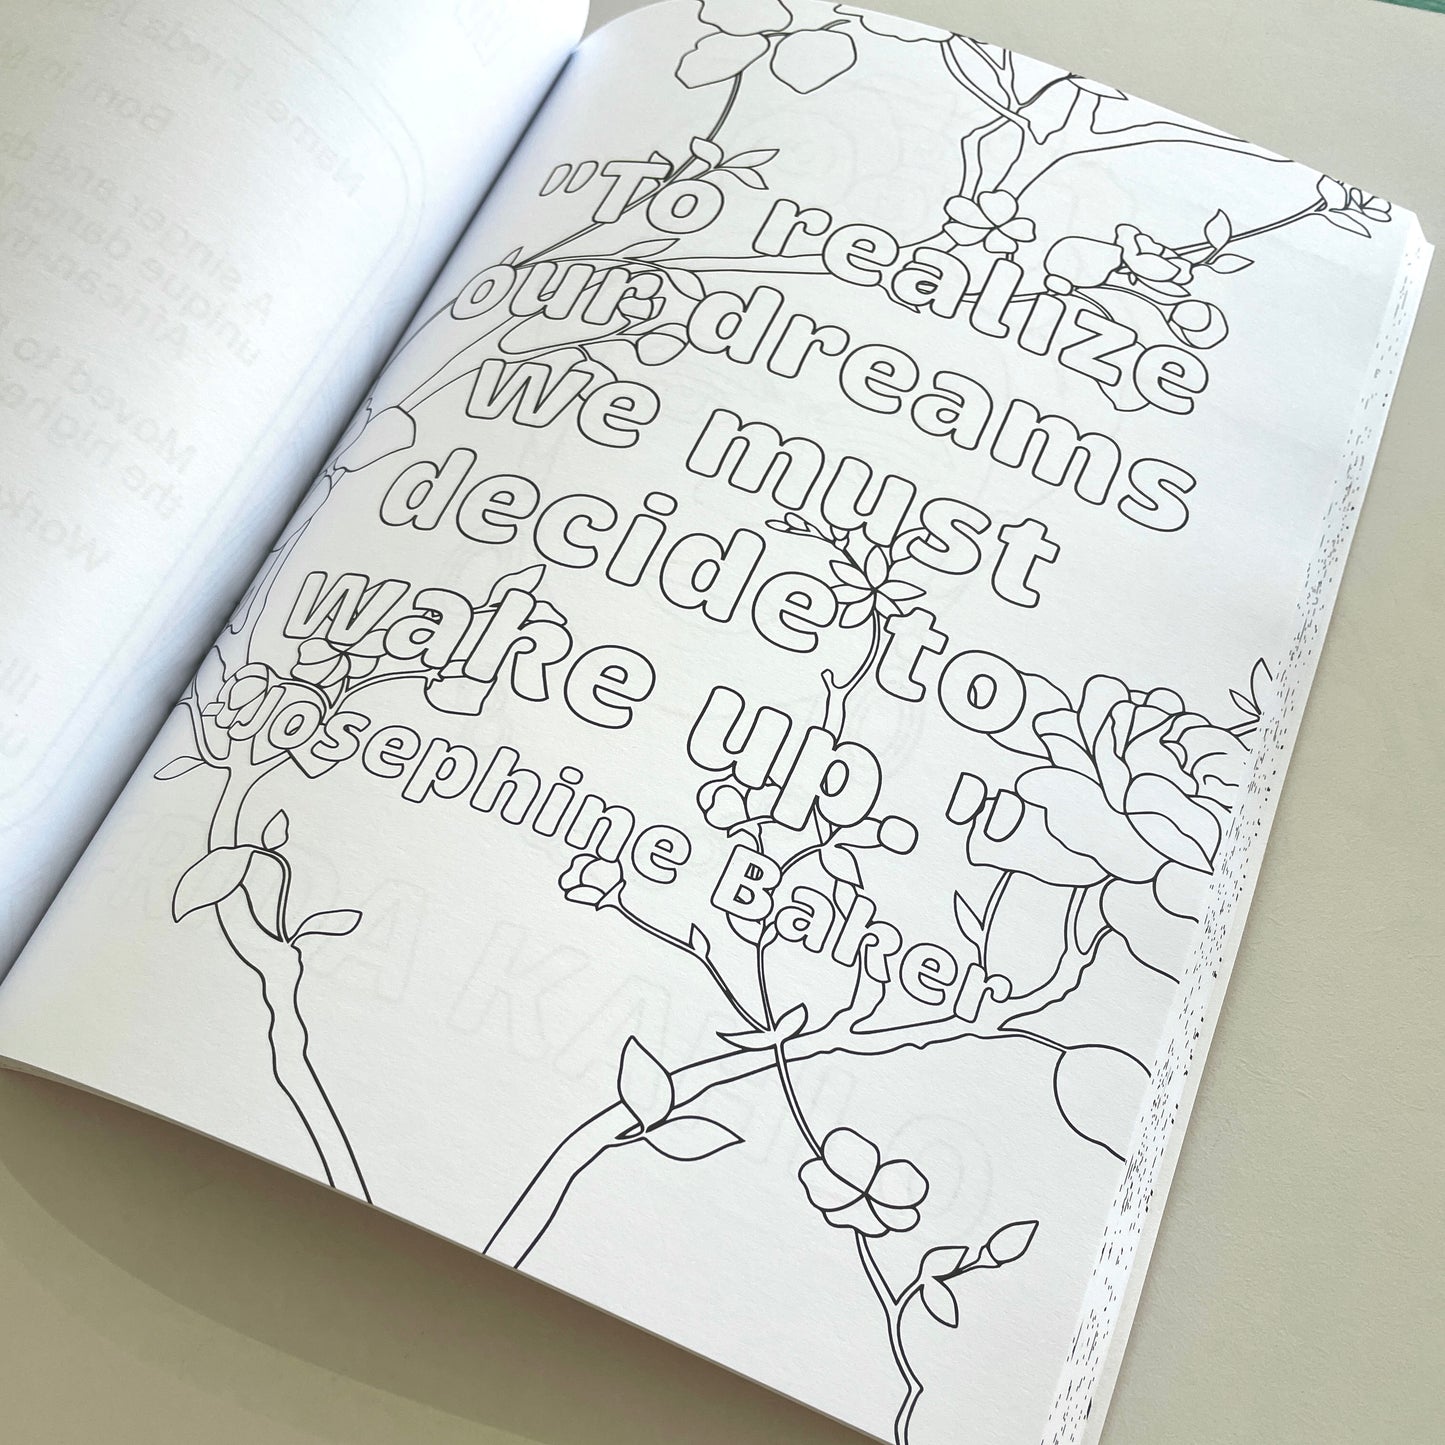 "To realize
our dreams
we must
decide to
wake up."
-Josephine Baker